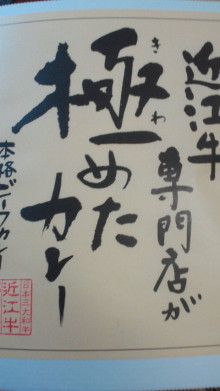 近江牛
専門店が
極めた
きわ
カレー
本格ビーフカレー
日本三大和牛
近江牛